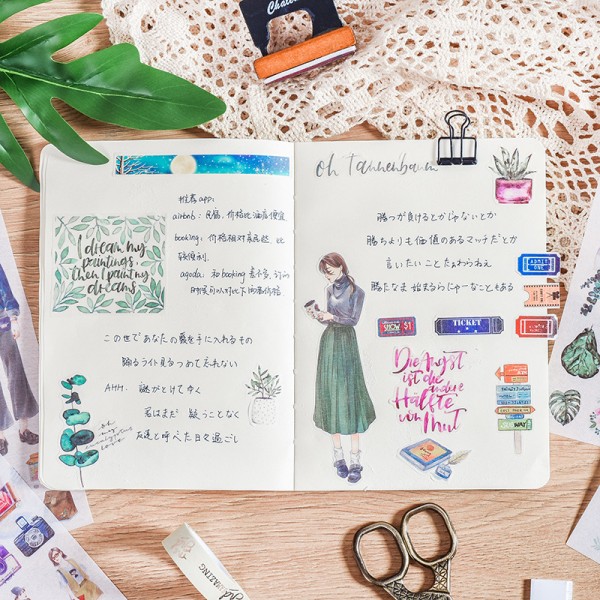 Chalet
推荐app:
airbnb: 民宿, 价格比酒店便宜
booking: 价格相对高昂 比
较便利.
agoda: 和booking差不多, 订的
时候可以对比下两家价格
I dream my
paintings,
then I paint my
dreams
この世であなたの愛を手に入れるもの
踊るライト見つめて忘れない
AHH. 謎がとけてゆく
君はまだ 疑うことなく
友達と呼べた日々過ごし
oh
my
oh Tannenbaum
勝つか負けるとかじゃないとか
勝ちよりも価値のあるマッチだとか
言いたいことだぁわらねえ
勝たなま 始まるらにゃーなこともある
ADMIT
ONE
SHOW
$1
TICKET
Die Angst
ist die
andere
Hälfte
von Mut
WAY
AMAZING